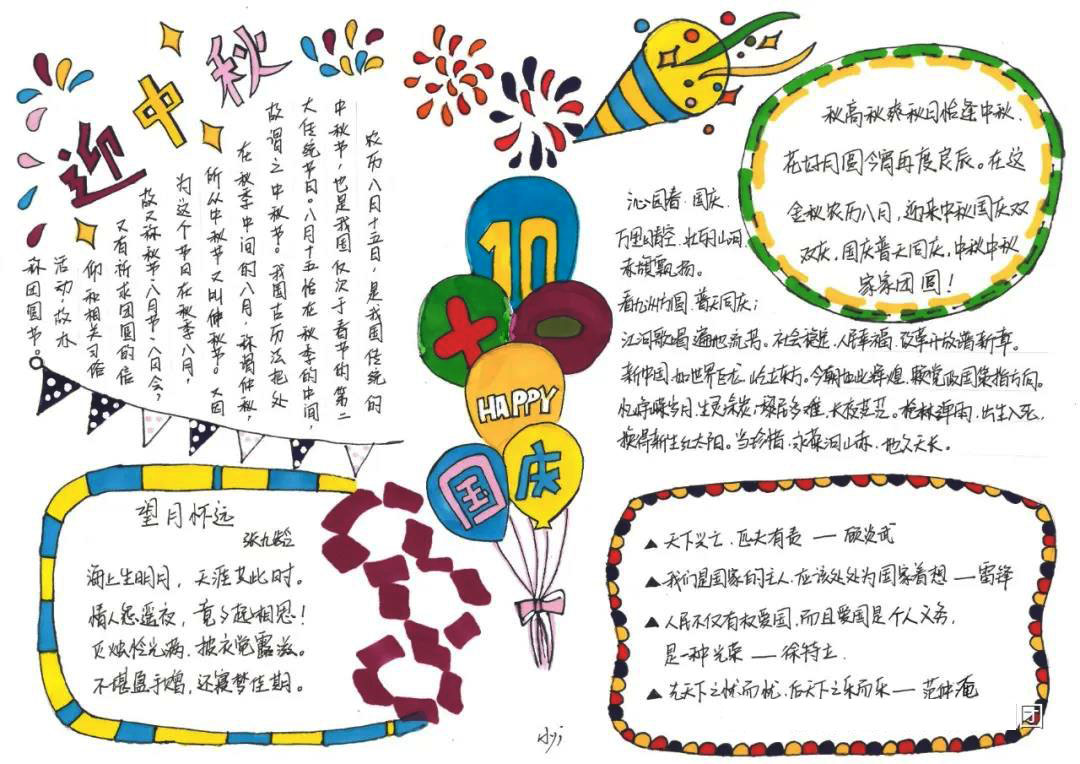 迎中秋
农历八月十五日,是我国传统的
中秋节,也是我国仅次于春节的第二
大传统节日。八月十五恰在秋季的中间,
故谓之中秋节。我国古历法把处
在秋季中间的八月,称谓仲秋,
所从中秋节又叫仲秋节。又因
为这个节日在秋季八月,
故又称秋节·八月节·八日令,
又有祈求团圆的信
仰和相关习俗
活动,故亦
称团圆节。
10
HAPPY
国庆
秋高秋爽秋日恰逢中秋.
花好月圆今宵再度良辰。在这
金秋农历八月,迎来中秋国庆双
双庆,国庆普天同庆,中秋中秋
家家团圆!
沁园春·国庆.
万里晴空,壮丽山河.
赤旗飘扬。
看九洲方圆,普天同庆;
江河歌唱,遍地流芳。社会稳定,人民幸福,改革开放谱新章。
新中国,如世界巨龙,屹立东方。今朝如此辉煌,颗党政国策指方向。
忆峥嵘岁月,生灵涂炭;移居多难,长夜茫茫。枪林弹雨,出生入死,
换得新生红太阳。当珍惜,永葆河山赤,地久天长。
望月怀远
张九龄
海上生明月,天涯共此时。
情人怨遥夜,竟夕起相思!
灭烛怜光满,披衣觉露滋。
不堪盈手赠,还寝梦佳期。
▲天下兴亡.匹夫有责——顾炎武
▲我们是国家的主人,应该处处为国家着想——雷锋
▲人民不仅有权爱国,而且爱国是个人义务,
是一种光荣——徐特立.
▲先天下之忧而忧,后天下之乐而乐——范仲淹
团